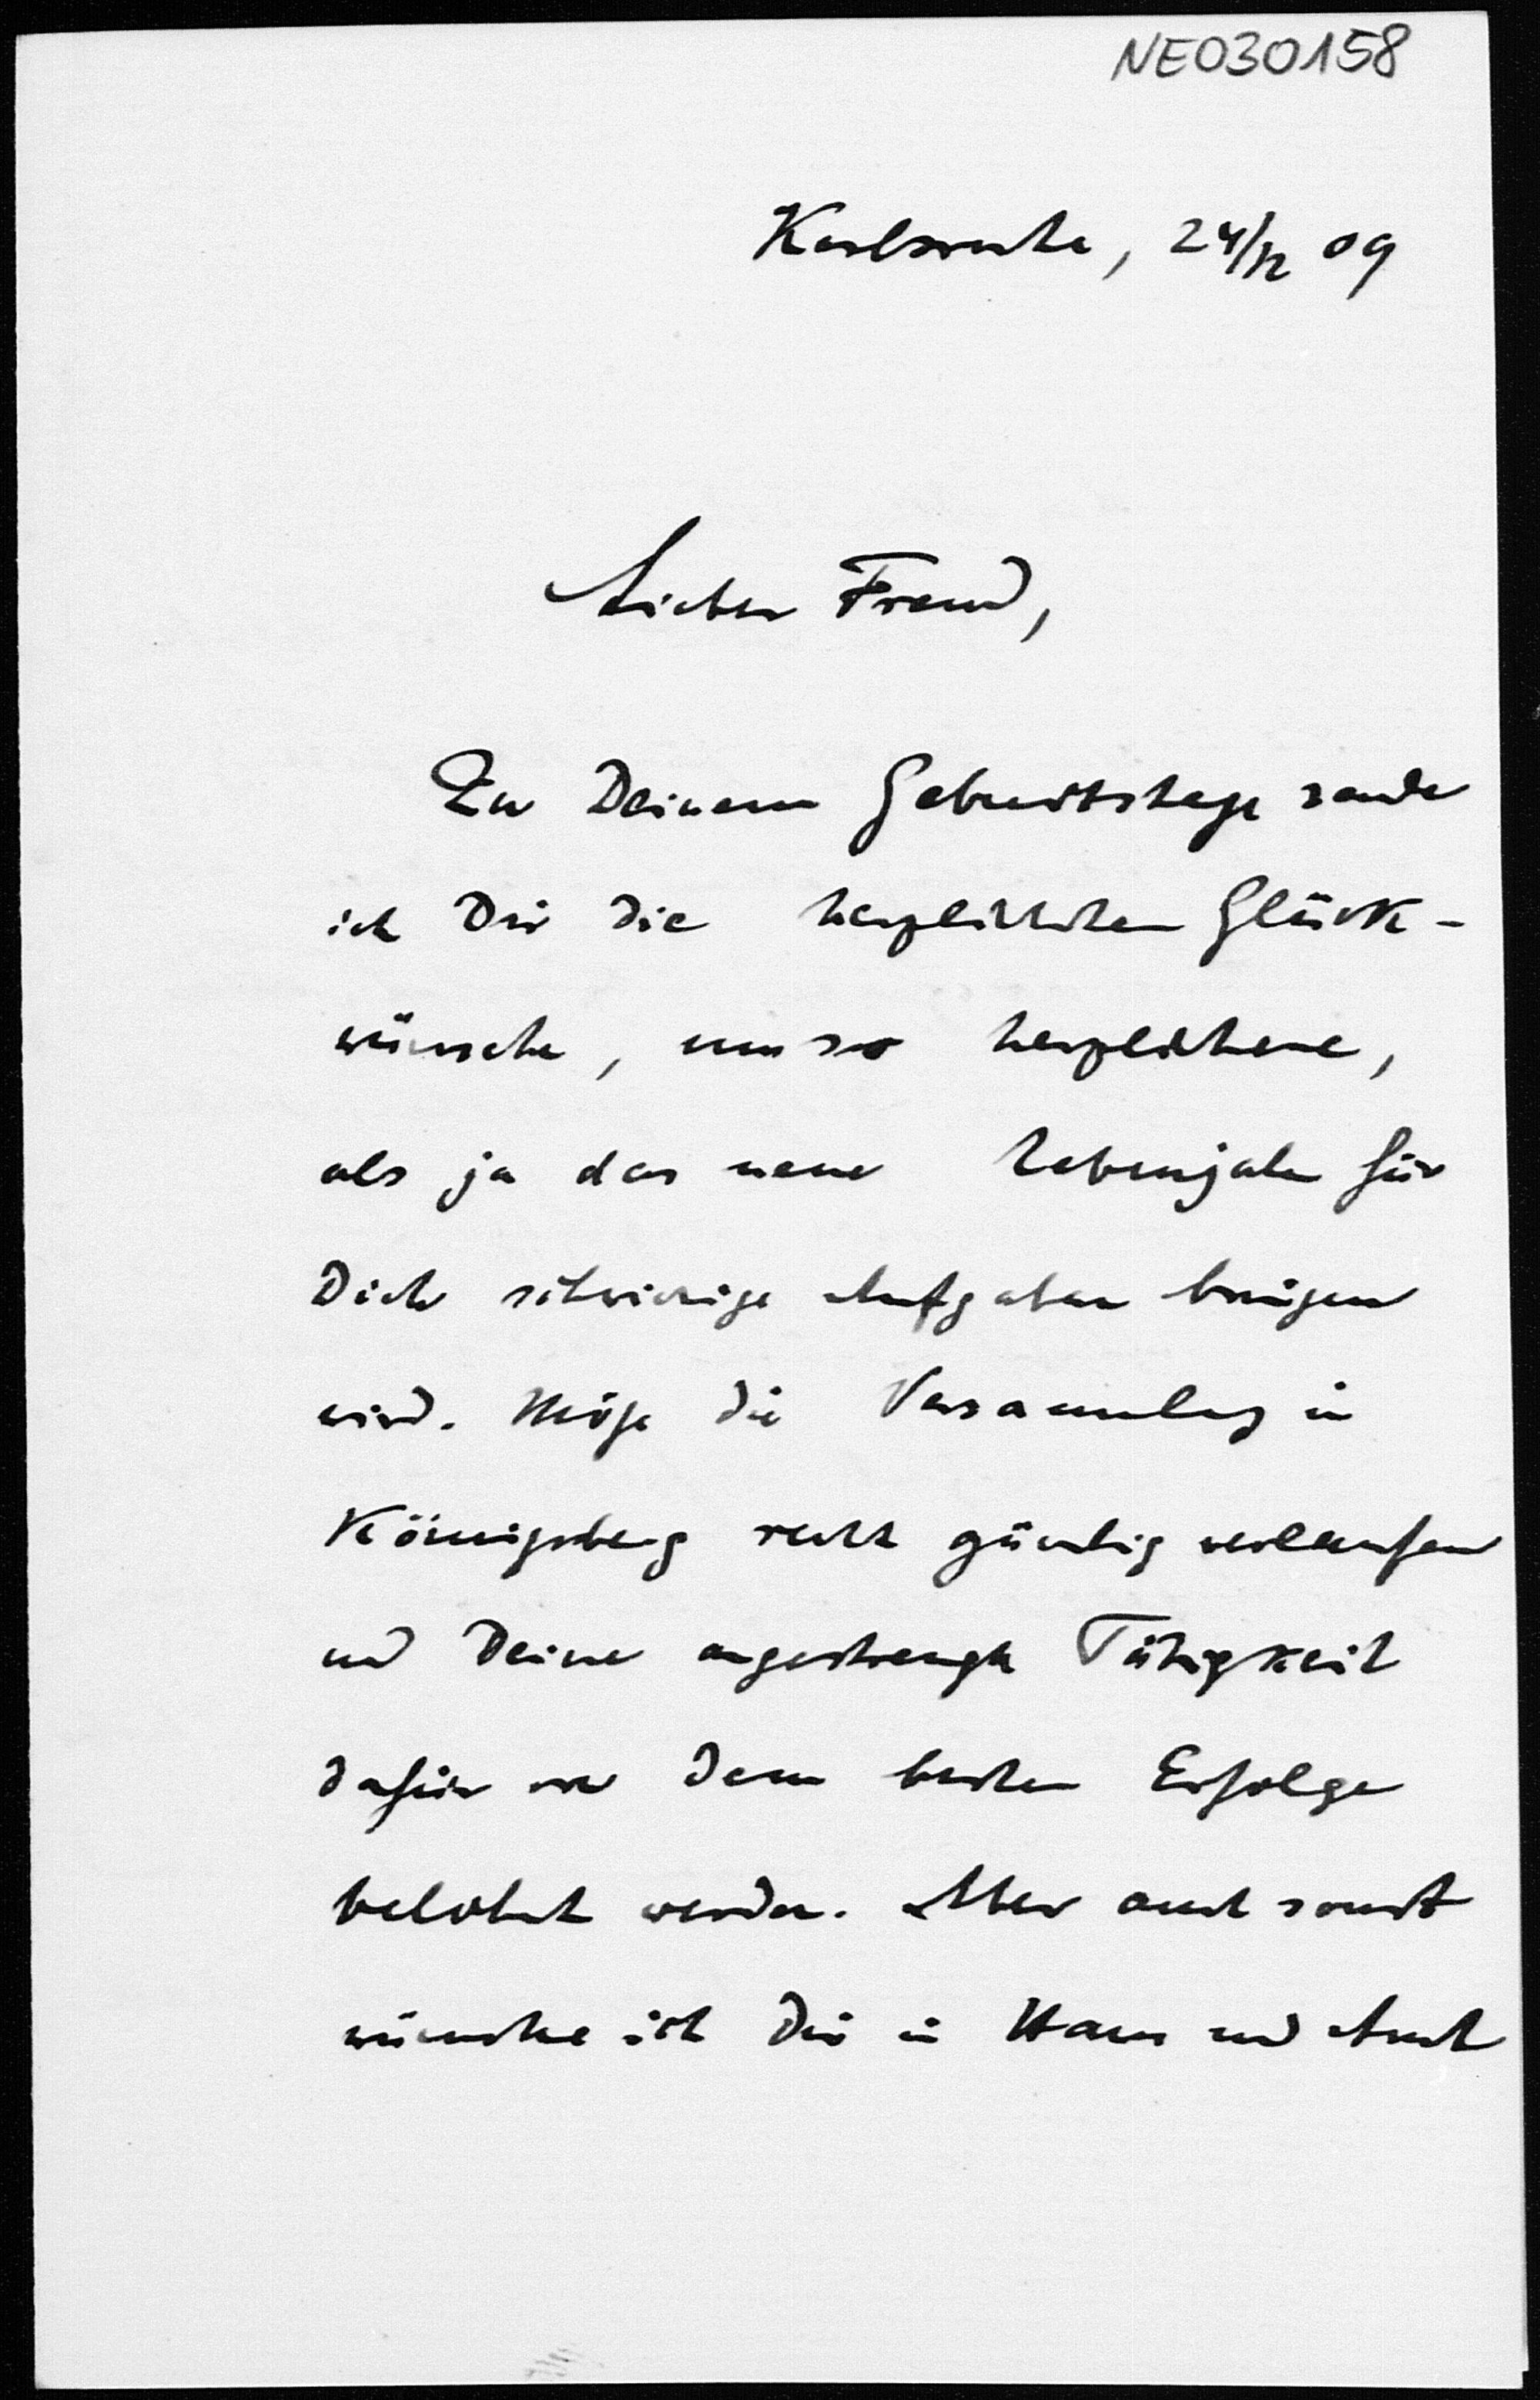 NE030158
Karlsruhe, 24/12 09
Lieber Freund,
Zu Deinem Geburtstage sende
ich Dir die herzlichsten Glück-
wünsche, umso herzlichere,
als ja das neue Lebensjahr für
Dich schwierige Aufgaben bringen
wird. Möge die Versammlung in
Königsberg recht günstig verlaufen
und Deine angestrengte Tätigkeit
dafür von dem besten Erfolge
belohnt werden. Aber auch sonst
wünsche ich Dir in Haus und Amt